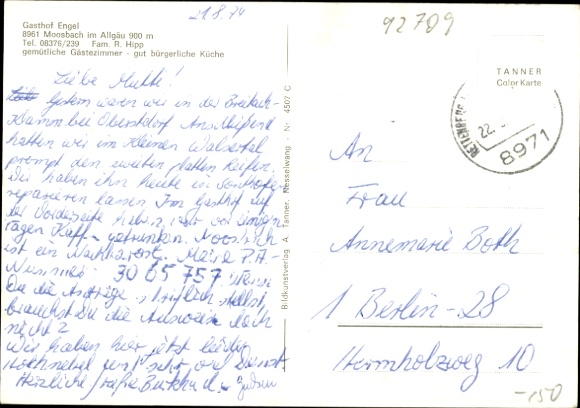 21.8.74
92709
Gasthof Engel
8961 Moosbach im Allgäu 900 m
Tel. 08376/239 Fam. R. Hipp
gemütliche Gästezimmer - gut bürgerliche Küche
TANNER
Color Karte
Liebe Mutti!
Gestern waren wir in der Breitach-
Klamm bei Oberstdorf Anschließend
hatten wir im Kleinen Walsertal
prompt den zweiten platten Reifen.
Wir haben ihn heute in Sonthofen
reparieren lassen. Im Gasthof auf
der Vorderseite haben wir vor einigen
Tagen Kaff. getrunken. Moosbach
ist ein Nachbarort. Meine P.A.-
Nummer 30 65 757
Du die Anträge stellst,
brauchst Du die Ausweise doch
nicht?
Wir haben hier jetzt leider
Hochnebel und sehr viel Dunst
Herzliche Grüße Burkhard
Bildkunstverlag A. Tanner, Nesselwang Nr. 4507 C
RETTENBERG
22.
8971
An
Frau
Annemarie Both
1 Berlin-28
Hermholzweg 10
-150